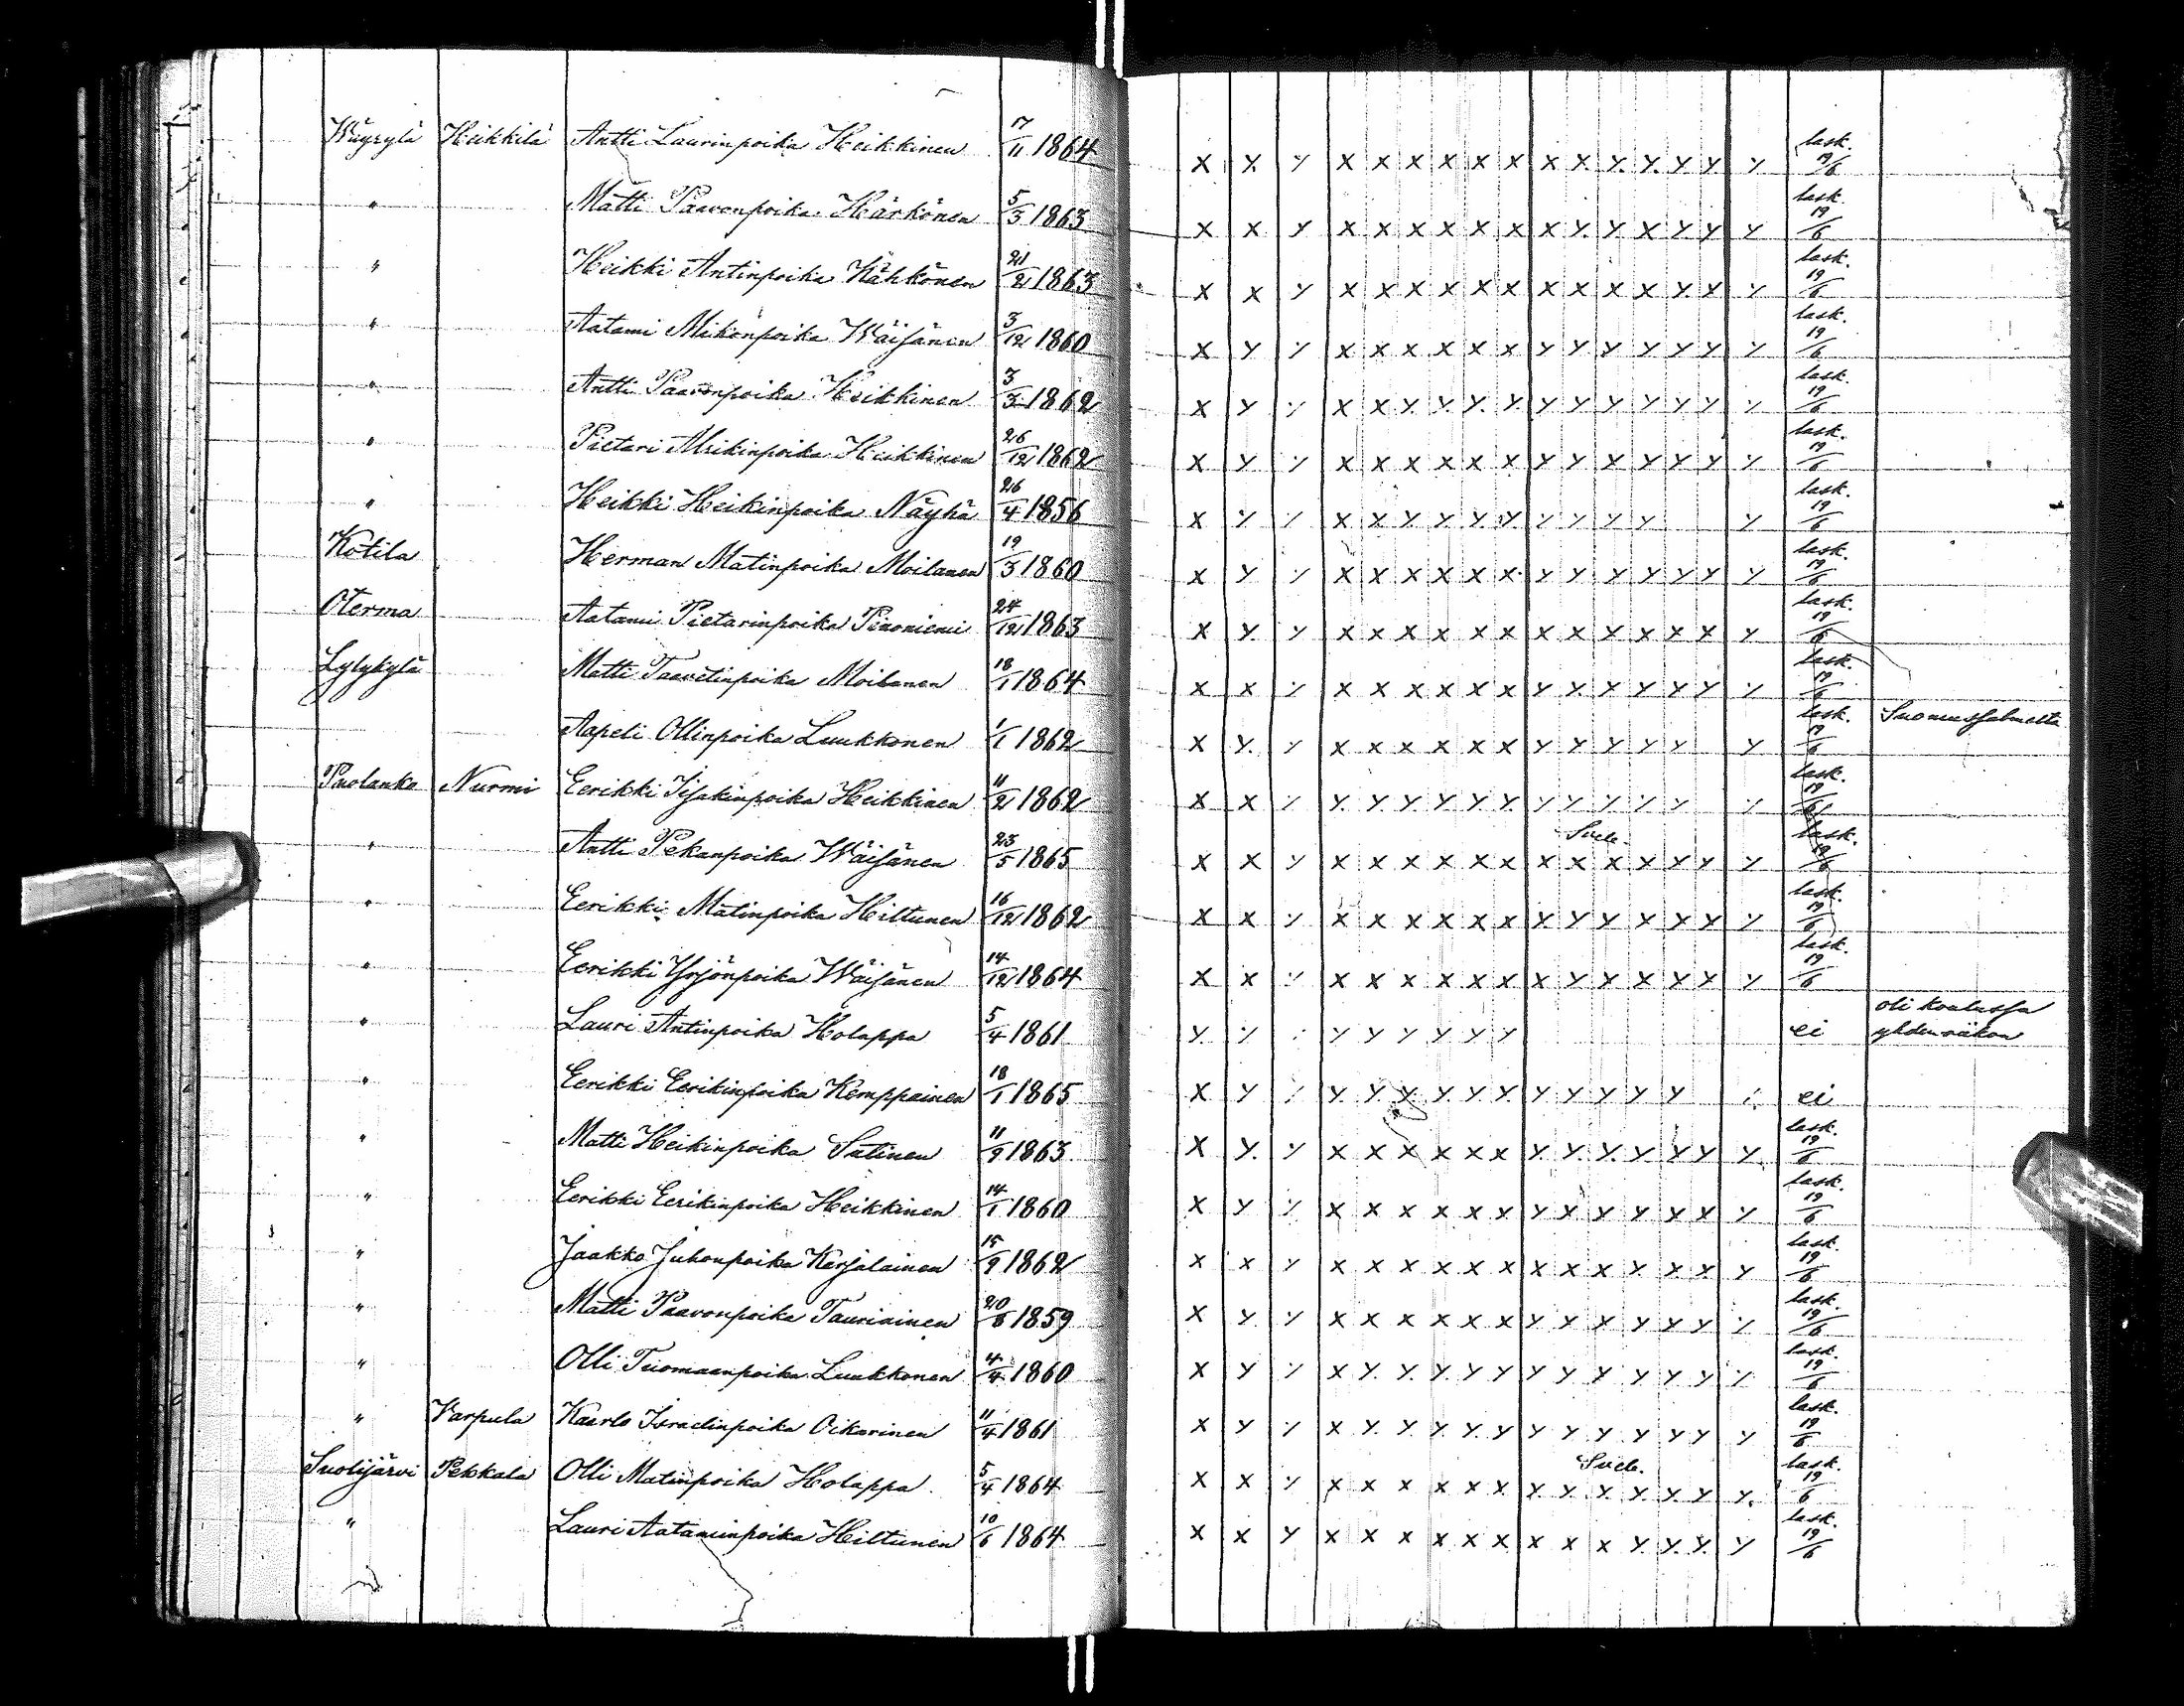 Wäyrylä Heikkilä Antti Laurinpoika Heikkinen 17/11 1864 x x y x x x x x x x x y y y y y lask. 19/6
" Matti Paavonpoika Härkönen 5/3 1863 x x y x x x x x x x y y x y y y lask. 19/6
" Heikki Antinpoika Kähkönen 21/2 1863 x x y x x x x x x x x x x y x y lask. 19/6
" Aatami Mikonpoika Wäisänen 3/12 1860 x y y x x x x x x y y y y y y y lask. 19/6
" Antti Paavonpoika Heikkinen 3/3 1862 x y y x x y y y y y y y y y y y lask. 19/6
" Pietari Mikinpoika Heikkinen 26/12 1862 x y y x x x x x x y y x y y y y lask. 19/6
" Heikki Heikinpoika Näyhä 26/4 1856 x y y x x y y y y y y y y y lask. 19/6
Kotila Herman Matinpoika Moilanen 19/3 1860 x y y x x x x x x y y y y y y y lask. 19/6
Oterma Aatami Pietarinpoika Piironiemi 24/12 1863 x y y x x x x x x x x x x x x y lask. 19/6
Lylykylä Matti Taavetinpoika Moilanen 18/1 1864 x x y x x x x x x y x x y y y y lask. 19/6
Aapeli Ollinpoika Luukkonen 1/1 1862 x y y x x x x x x y y y y y y lask. 19/6 Suomussalmelta
Puolanko Nurmi Eerikki Iisakinpoika Heikkinen 11/2 1862 x x y y y y y y y y y y y y y lask. 19/6
" Antti Pekanpoika Wäisänen 23/5 1865 x x y x x x x x x x x x x x y y lask. 19/6
" Eerikki Matinpoika Hiltunen 16/12 1862 x x y x x x x x x x y y x x y y lask. 19/6
" Eerikki Yrjönpoika Wäisänen 14/12 1864 x x y x x x x x x x y x x x x y lask. 19/6
" Lauri Antinpoika Holappa 5/4 1861 y y y y y y y y ei oli koulussa yhden viikon
" Eerikki Eerikinpoika Kemppainen 18/1 1865 x y y y y y y y y y y y y y y ei
" Matti Heikinpoika Sutinen 11/9 1863 x y y x x x x x x y y y y y y y lask. 19/6
" Eerikki Eerikinpoika Heikkinen 14/1 1860 x y y x x x x x x y x y y x x y lask. 19/6
" Jaakko Juhonpoika Karjalainen 15/9 1862 x x y x x x x x x x x x y x x y lask. 19/6
" Matti Paavonpoika Tauriainen 20/8 1859 x y y x x x x x x y x y y y y y lask. 19/6
" Olli Tuomaanpoika Luukkonen 4/4 1860 x y y x y y y y y y y y y y y y lask. 19/6
" Varpula Kaarlo Israelinpoika Oikarinen 11/4 1861 x y y x y y y y y y y y y y y y lask. 19/6
Suolijärvi Pekkala Olli Matinpoika Holappa 5/4 1864 x x y x x x x x x y y y y y y y lask. 19/6
" Lauri Aataminpoika Hiltunen 10/6 1864 x x y x x x x x x x x x y y y y lask. 19/6